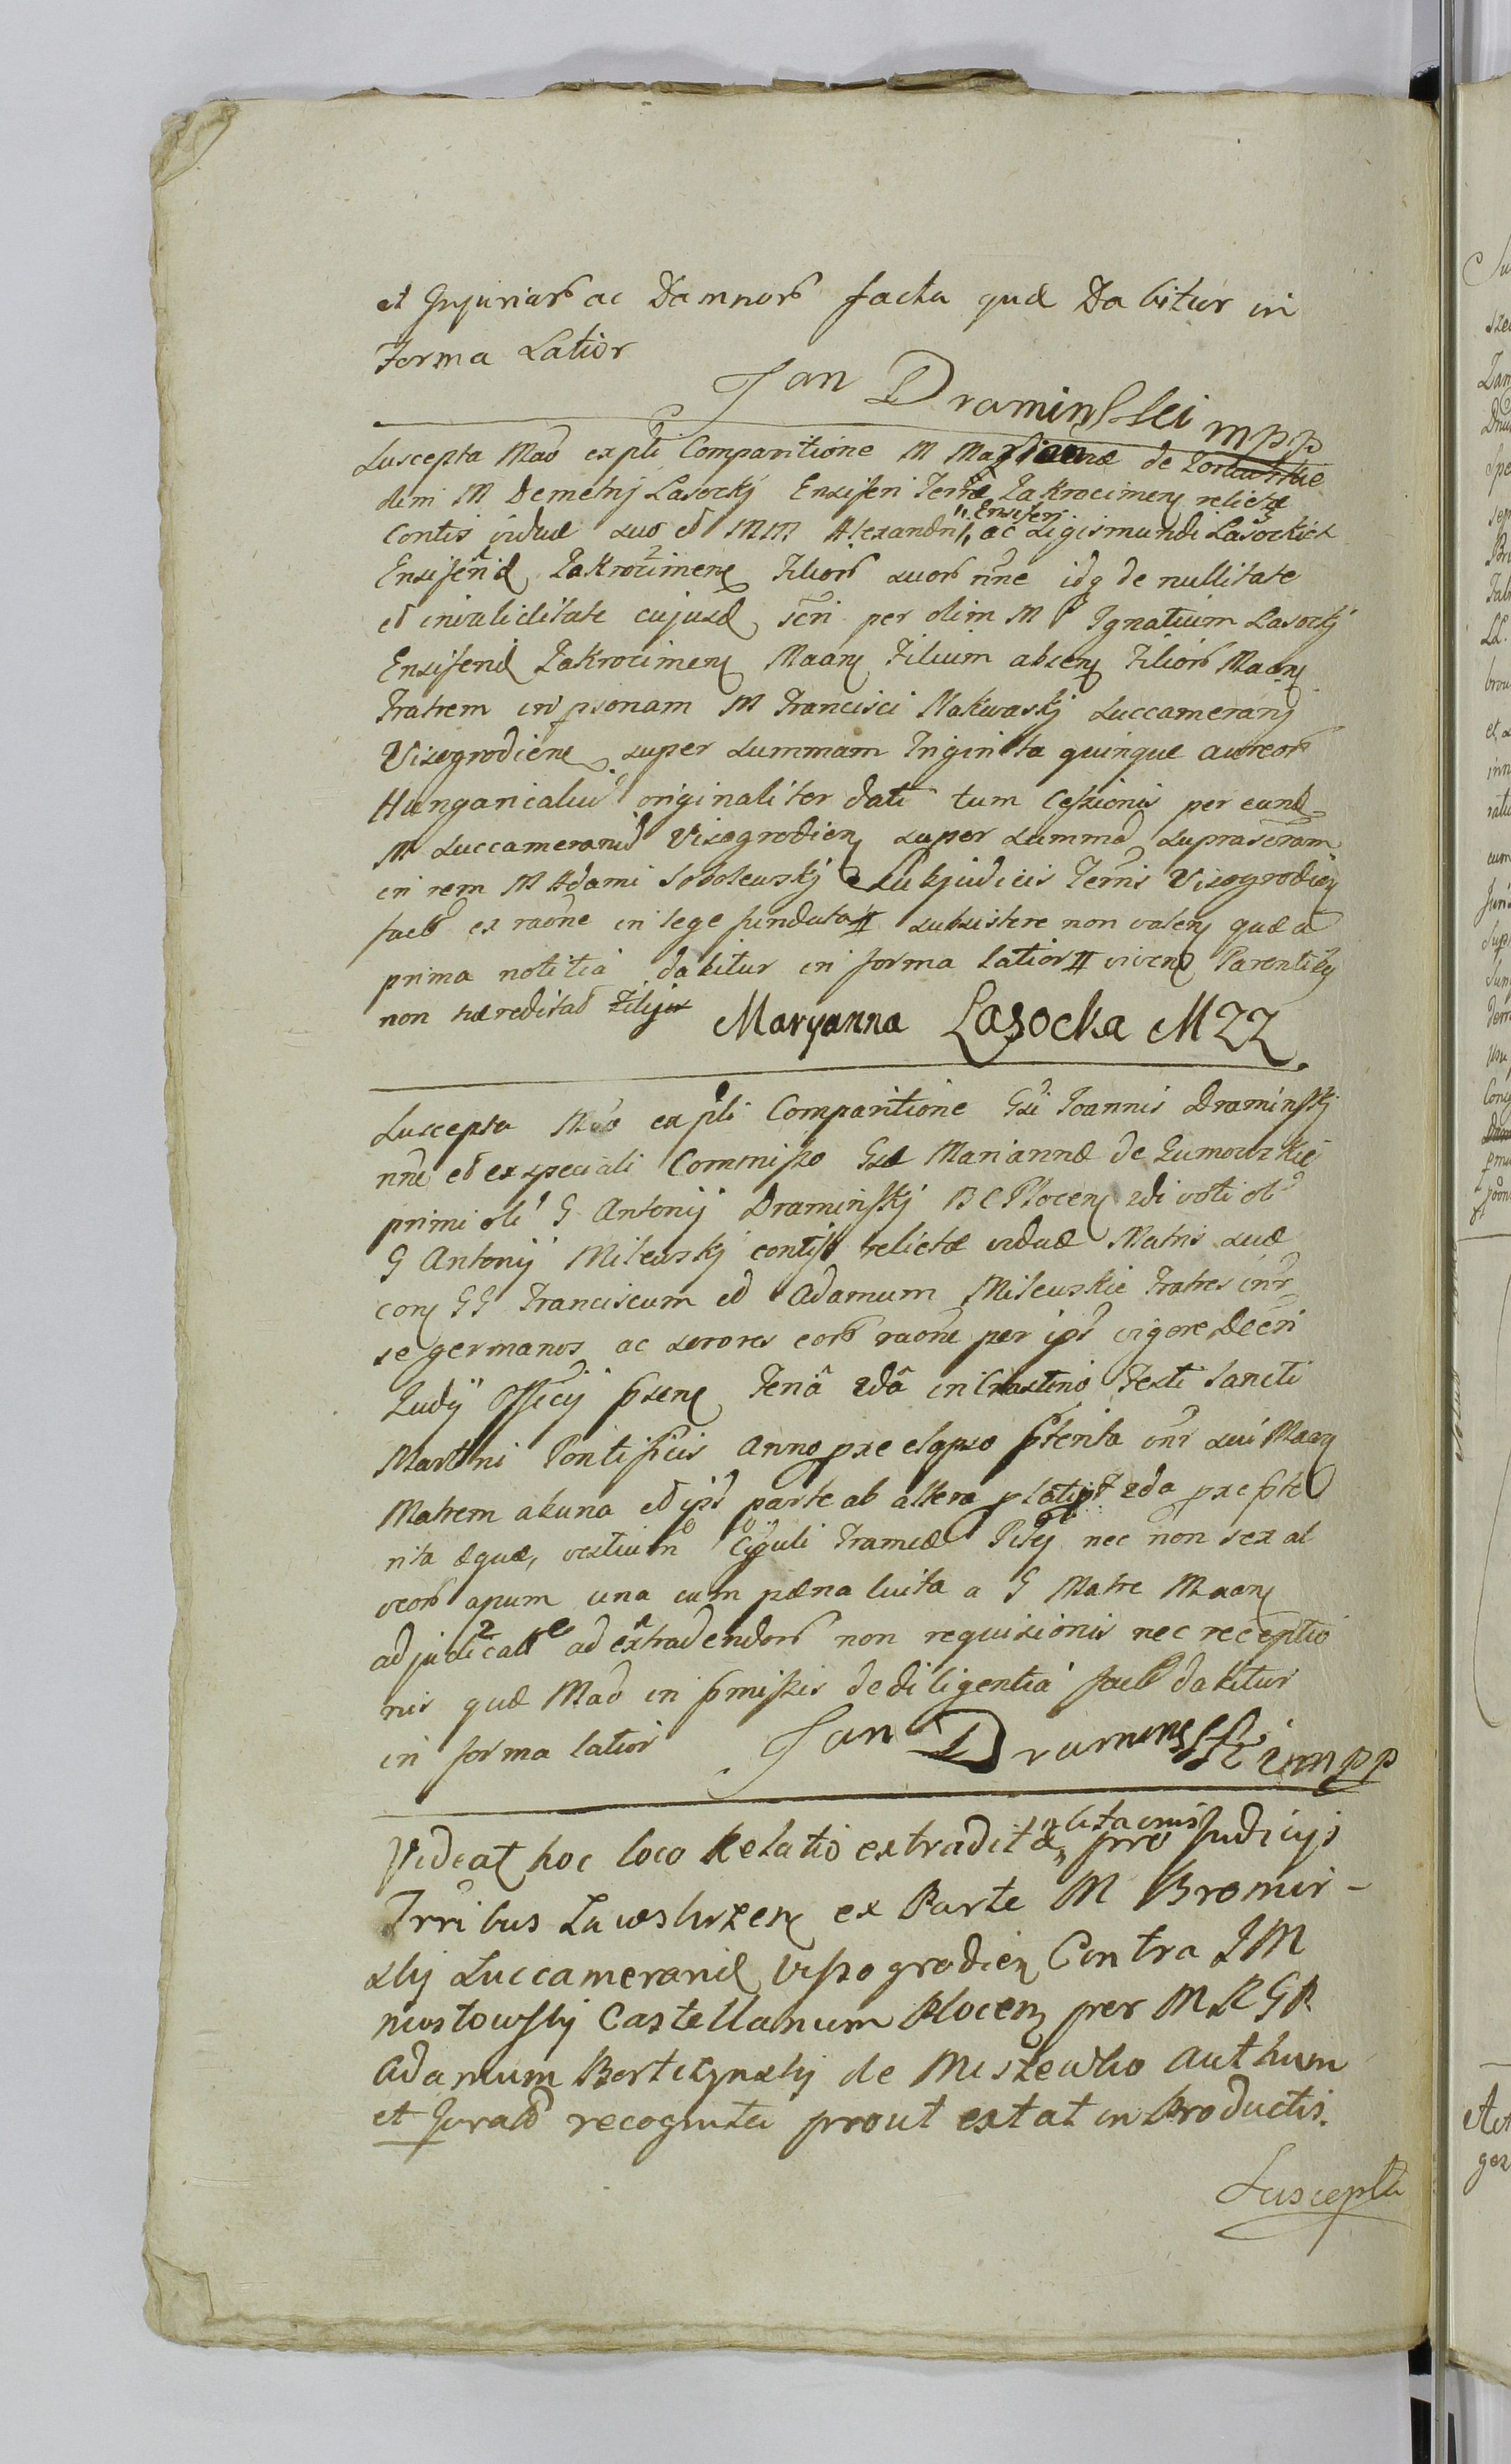 et Injuriarb ac Damnorb facta quæ Dabitur in
Forma Latior
Jan Draminsski mpp
Suscepta Mad ex pti Comparitione M Mariannæ de
olim M Demetrij Lasockj Ensiferi Terræ Zakrocimens relictæ
Contis viduæ suo et MM Alexandri „Ensiferi„ ac Sigismundi Lasockich
Ensiferid Zakrocimens Filiorb suorb nne idq de nullitate
et invaliditate cujusd scri per olim M Ignatium Lasockj
Ensiferid Zakrocimens Maars Filium absens Filiorb Maars
Fratrem in psonam M Francisci Nakwaskj Succameranj
Visogrodiens super summam Triginta quinque aureorb
Hungaricaliu originaliter dati tum Cessionis per eund
M Succamerarid Visogrodiens super summa suprascram
in rem M Adami Sobolewskj Subjudicis Terris Visogrodiens
factb ex raone in lege fundata # subsistere non valens quæ a
prima notitia dabitur in forma latiori # vivens Parentibq
non hæreditab Filijs Maryanna Lasocka M ZZ
Suscepta Mad ex pti Comparitione Gsi Joannis Draminsskj
nne et ex speciali Commisso Gsæ Mariannæ de Zumowskie
primi oli G Antonij Draminsskj B C Plocens 2di voti oli
G Antonij Milewskj contis relictæ viduæ Matris suæ
cons GG Franciscum et Adamum Milewskie Fratres intr
se germanos ac sorores eorb raone per ips vigore Decri
Judij Officij psens Feria 2da in Crastino Festi Sancti
Martini Pontificis Anno præelapso ptenta intr sui Maars
Matrem ab una et ips parte ab altera platis 2da præpte
rita æquæ, vestium Cinguli Frameæ Pisij nec non sex al
veorb apum una cum pæna luita a G Matre Maars
adjudicatb ad extradendorb non requisionis nec receptio
nis quæ Mad in pmissis de diligentia factb dabitur
in forma latior Jan Draminsski mpp
Videat hoc loco Relatio extraditæ „litaonis„ pro Judicijs
Trribus Zawskrzens ex Parte M Bromir-
skij Succamerarid Vissogrodien Contra IM
mostowskij Castellanum Plocens per M R G R
Adamum Bartkynskij de Miszewko Authum
et Juratb recognita prout extat in Productis.
Suscepta